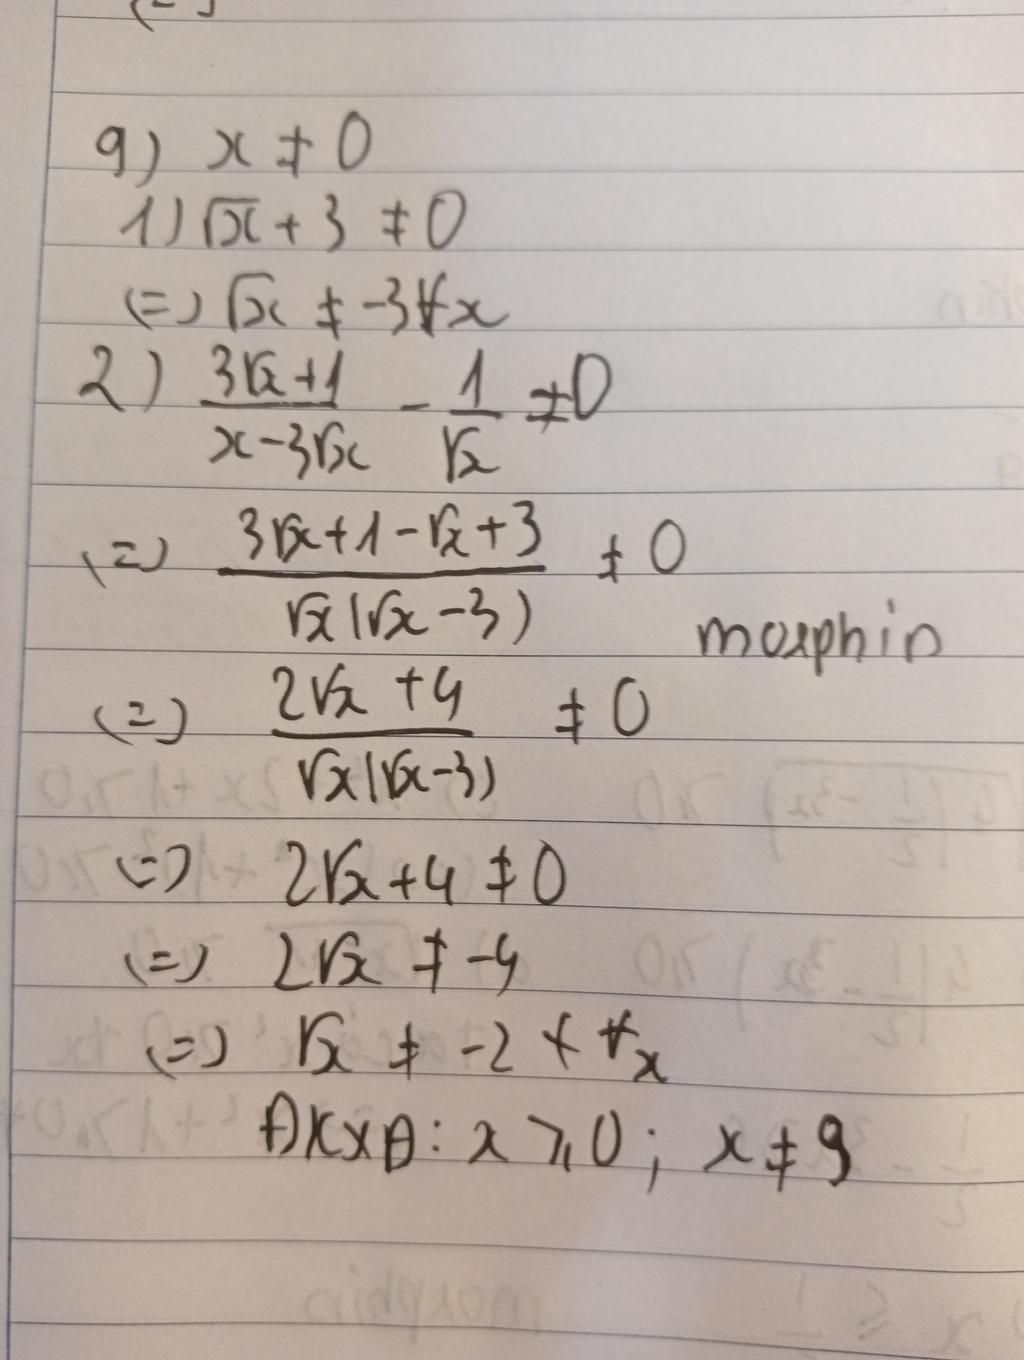 9) x ≠ 0
1) √x + 3 ≠ 0
(=) √x ≠ -3 ∀x
2) (3√x+1)/(x-3√x) - 1/√x ≠ 0
(=) (3√x+1-√x+3)/(√x(√x-3)) ≠ 0
morphin
(=) (2√x+4)/(√x(√x-3)) ≠ 0
(=) 2√x+4 ≠ 0
(=) 2√x ≠ -4
(=) √x ≠ -2 ∀x
ĐKXĐ: x ⩾ 0; x ≠ 9